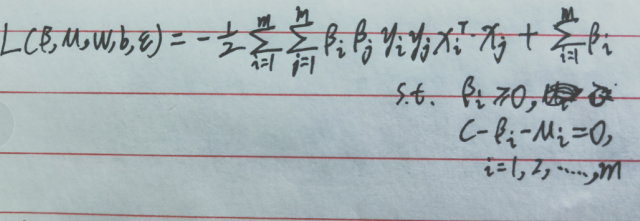 L(β,μ,w,b,ε) = -1/2 ∑_{i=1}^{m} ∑_{j=1}^{m} β_i β_j y_i y_j x_i^T · x_j + ∑_{i=1}^{m} β_i
s.t. β_i ≥0,
C-β_i-μ_i=0,
i=1,2,……,m